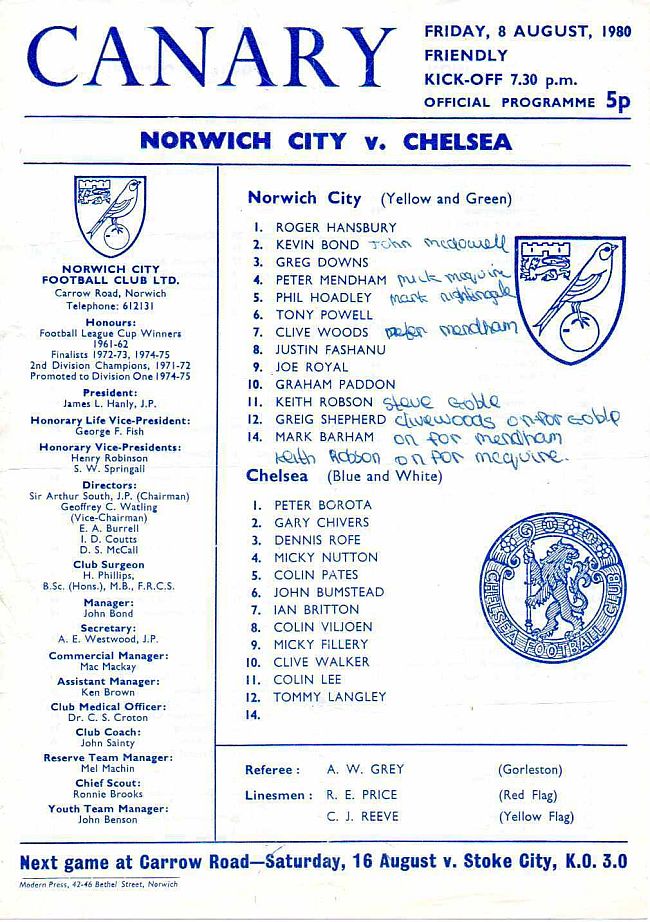 CANARY
FRIDAY, 8 AUGUST, 1980
FRIENDLY
KICK-OFF 7.30 p.m.
OFFICIAL PROGRAMME 5p
NORWICH CITY v. CHELSEA
NORWICH CITY
FOOTBALL CLUB LTD.
Carrow Road, Norwich
Telephone: 612131
Honours:
Football League Cup Winners
1961-62
Finalists 1972-73, 1974-75
2nd Division Champions, 1971-72
Promoted to Division One 1974-75
President:
James L. Hanly, J.P.
Honorary Life Vice-President:
George F. Fish
Honorary Vice-Presidents:
Henry Robinson
S. W. Springall
Directors:
Sir Arthur South, J.P. (Chairman)
Geoffrey C. Watling
(Vice-Chairman)
E. A. Burrell
I. D. Coutts
D. S. McCall
Club Surgeon
H. Phillips,
B.Sc. (Hons.), M.B., F.R.C.S.
Manager:
John Bond
Secretary:
A. E. Westwood, J.P.
Commercial Manager:
Mac Mackay
Assistant Manager:
Ken Brown
Club Medical Officer:
Dr. C. S. Croton
Club Coach:
John Sainty
Reserve Team Manager:
Mel Machin
Chief Scout:
Ronnie Brooks
Youth Team Manager:
John Benson
Norwich City (Yellow and Green)
1. ROGER HANSBURY
2. KEVIN BOND John mcdowell
3. GREG DOWNS
4. PETER MENDHAM mick mcguire
5. PHIL HOADLEY mark nightingale
6. TONY POWELL
7. CLIVE WOODS peter mendham
8. JUSTIN FASHANU
9. JOE ROYAL
10. GRAHAM PADDON
11. KEITH ROBSON steve Goble
12. GREIG SHEPHERD clivewoods on for Goble
14. MARK BARHAM on for mendham
Keith Robson on for mcguire.
Chelsea (Blue and White)
1. PETER BOROTA
2. GARY CHIVERS
3. DENNIS ROFE
4. MICKY NUTTON
5. COLIN PATES
6. JOHN BUMSTEAD
7. IAN BRITTON
8. COLIN VILJOEN
9. MICKY FILLERY
10. CLIVE WALKER
11. COLIN LEE
12. TOMMY LANGLEY
14.
CHELSEA FOOTBALL CLUB
Referee: A. W. GREY (Gorleston)
Linesmen: R. E. PRICE (Red Flag)
C. J. REEVE (Yellow Flag)
Next game at Carrow Road—Saturday, 16 August v. Stoke City, K.O. 3.0
Modern Press, 42-46 Bethel Street, Norwich